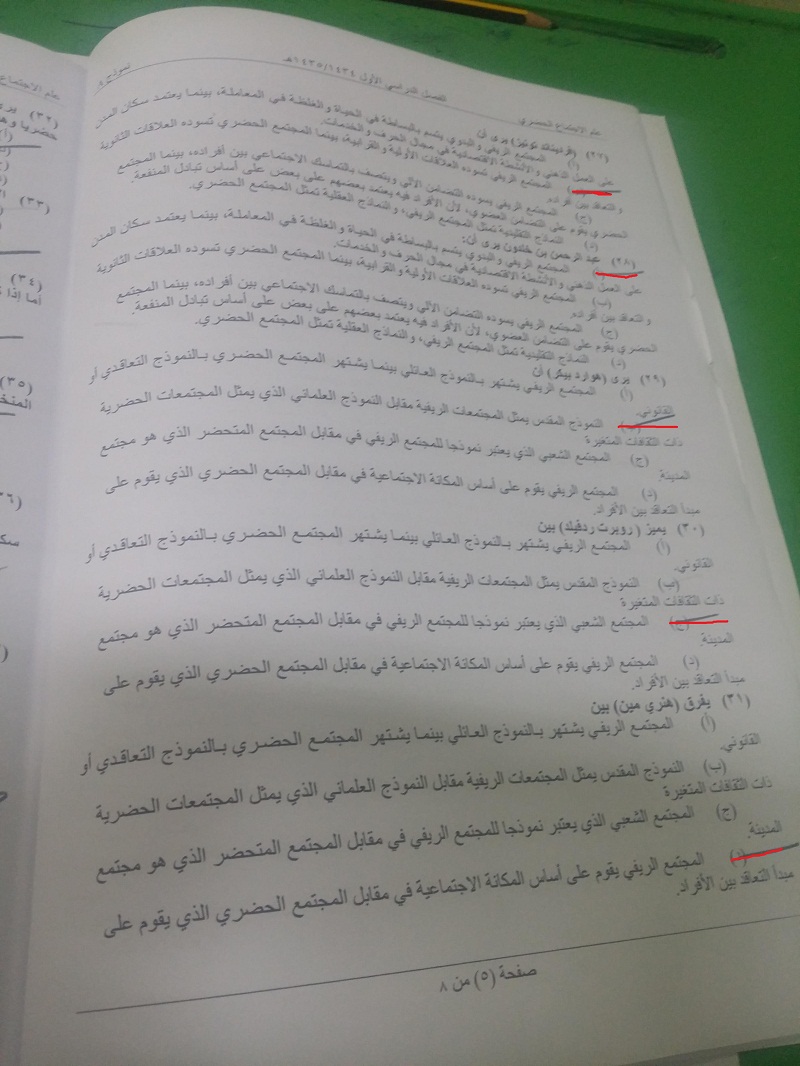 علم الاجتماع الحضري الفصل الدراسي الأول ١٤٣٤/١٤٣٥هـ نموذج
(٢٧) (فرديناند تونيز) يرى أن
(أ) المجتمع الريفي والبدوي يتسم بالبساطة في الحياة والغلظة في المعاملة، بينما يعتمد سكان المدن
على العمل الذهني والأنشطة الاقتصادية في مجال الحرف والخدمات.
المجتمع الريفي تسوده العلاقات الأولية والقرابية، بينما المجتمع الحضري تسوده العلاقات الثانوية
والتعاقد بين أفراده.
(ج) المجتمع الريفي يسوده التضامن الآلي ويتصف بالتماسك الاجتماعي بين أفراده، بينما المجتمع
الحضري يقوم على التضامن العضوي، لأن الأفراد فيه يعتمد بعضهم على بعض على أساس تبادل المنفعة.
(د) النماذج التقليدية تمثل المجتمع الريفي، والنماذج العقلية تمثل المجتمع الحضري.
(٢٨) عبد الرحمن بن خلدون يرى أن:
المجتمع الريفي والبدوي يتسم بالبساطة في الحياة والغلظة في المعاملة، بينما يعتمد سكان المدن
على العمل الذهني والأنشطة الاقتصادية في مجال الحرف والخدمات.
(ب) المجتمع الريفي تسوده العلاقات الأولية والقرابية، بينما المجتمع الحضري تسوده العلاقات الثانوية
والتعاقد بين أفراده.
(ج) المجتمع الريفي يسوده التضامن الآلي ويتصف بالتماسك الاجتماعي بين أفراده، بينما المجتمع
الحضري يقوم على التضامن العضوي، لأن الأفراد فيه يعتمد بعضهم على بعض على أساس تبادل المنفعة.
(د) النماذج التقليدية تمثل المجتمع الريفي، والنماذج العقلية تمثل المجتمع الحضري.
(٢٩) يرى (هوارد بيكر) أن
(أ) المجتمع الريفي يشتهر بالنموذج العائلي بينما يشتهر المجتمع الحضري بالنموذج التعاقدي أو
القانوني.
(ب) النموذج المقدس يمثل المجتمعات الريفية مقابل النموذج العلماني الذي يمثل المجتمعات الحضرية
ذات الثقافات المتغيرة
(ج) المجتمع الشعبي الذي يعتبر نموذجا للمجتمع الريفي في مقابل المجتمع المتحضر الذي هو مجتمع
المدينة.
(د) المجتمع الريفي يقوم على أساس المكانة الاجتماعية في مقابل المجتمع الحضري الذي يقوم على
مبدأ التعاقد بين الأفراد.
(٣٠) يميز (روبرت ردفيلد) بين
(أ) المجتمع الريفي يشتهر بالنموذج العائلي بينما يشتهر المجتمع الحضري بالنموذج التعاقدي أو
القانوني.
(ب) النموذج المقدس يمثل المجتمعات الريفية مقابل النموذج العلماني الذي يمثل المجتمعات الحضرية
ذات الثقافات المتغيرة
(ج) المجتمع الشعبي الذي يعتبر نموذجا للمجتمع الريفي في مقابل المجتمع المتحضر الذي هو مجتمع
المدينة.
(د) المجتمع الريفي يقوم على أساس المكانة الاجتماعية في مقابل المجتمع الحضري الذي يقوم على
مبدأ التعاقد بين الأفراد.
(٣١) يفرق (هنري مين) بين
(أ) المجتمع الريفي يشتهر بالنموذج العائلي بينما يشتهر المجتمع الحضري بالنموذج التعاقدي أو
القانوني.
(ب) النموذج المقدس يمثل المجتمعات الريفية مقابل النموذج العلماني الذي يمثل المجتمعات الحضرية
ذات الثقافات المتغيرة
(ج) المجتمع الشعبي الذي يعتبر نموذجا للمجتمع الريفي في مقابل المجتمع المتحضر الذي هو مجتمع
المدينة.
(د) المجتمع الريفي يقوم على أساس المكانة الاجتماعية في مقابل المجتمع الحضري الذي يقوم على
مبدأ التعاقد بين الأفراد.
صفحة (٥) من ٨
علم الاجتماع
(٣٢) يرى
حضريا وهـ
(٣٣)
(٣٤)
أما إذا
(٣٥)